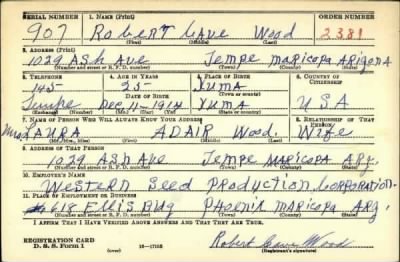 SERIAL NUMBER 1. NAME (Print) ORDER NUMBER
907 Robert Cave Wood 2381
(First) (Middle) (Last)
2. ADDRESS (Print)
1029 Ash Ave Tempe Maricopa Arizona
(Number and street or R. F. D. number) (Town) (County) (State)
3. TELEPHONE 4. AGE IN YEARS 5. PLACE OF BIRTH 6. COUNTRY OF CITIZENSHIP
145 25 Yuma
DATE OF BIRTH (Town or county)
Tempe Dec 11-1914 Yuma USA
7. NAME OF PERSON WHO WILL ALWAYS KNOW YOUR ADDRESS 8. RELATIONSHIP OF THAT PERSON
Mrs LAURA ADAIR Wood. Wife
(Mr., Mrs., Miss) (First) (Middle) (Last)
9. ADDRESS OF THAT PERSON
1029 Ash Ave Tempe Maricopa Arz.
(Number and street or R. F. D. number) (Town) (County) (State)
10. EMPLOYER'S NAME
Western Seed Production Corporation
11. PLACE OF EMPLOYMENT OR BUSINESS
618 Ellis Bldg Phoenix Maricopa Arz.
(Number and street or R. F. D. number) (Town) (County) (State)
I AFFIRM THAT I HAVE VERIFIED ABOVE ANSWERS AND THAT THEY ARE TRUE.
REGISTRATION CARD
D. S. S. Form 1 16-17105 Robert Cave Wood
(Registrant's signature)